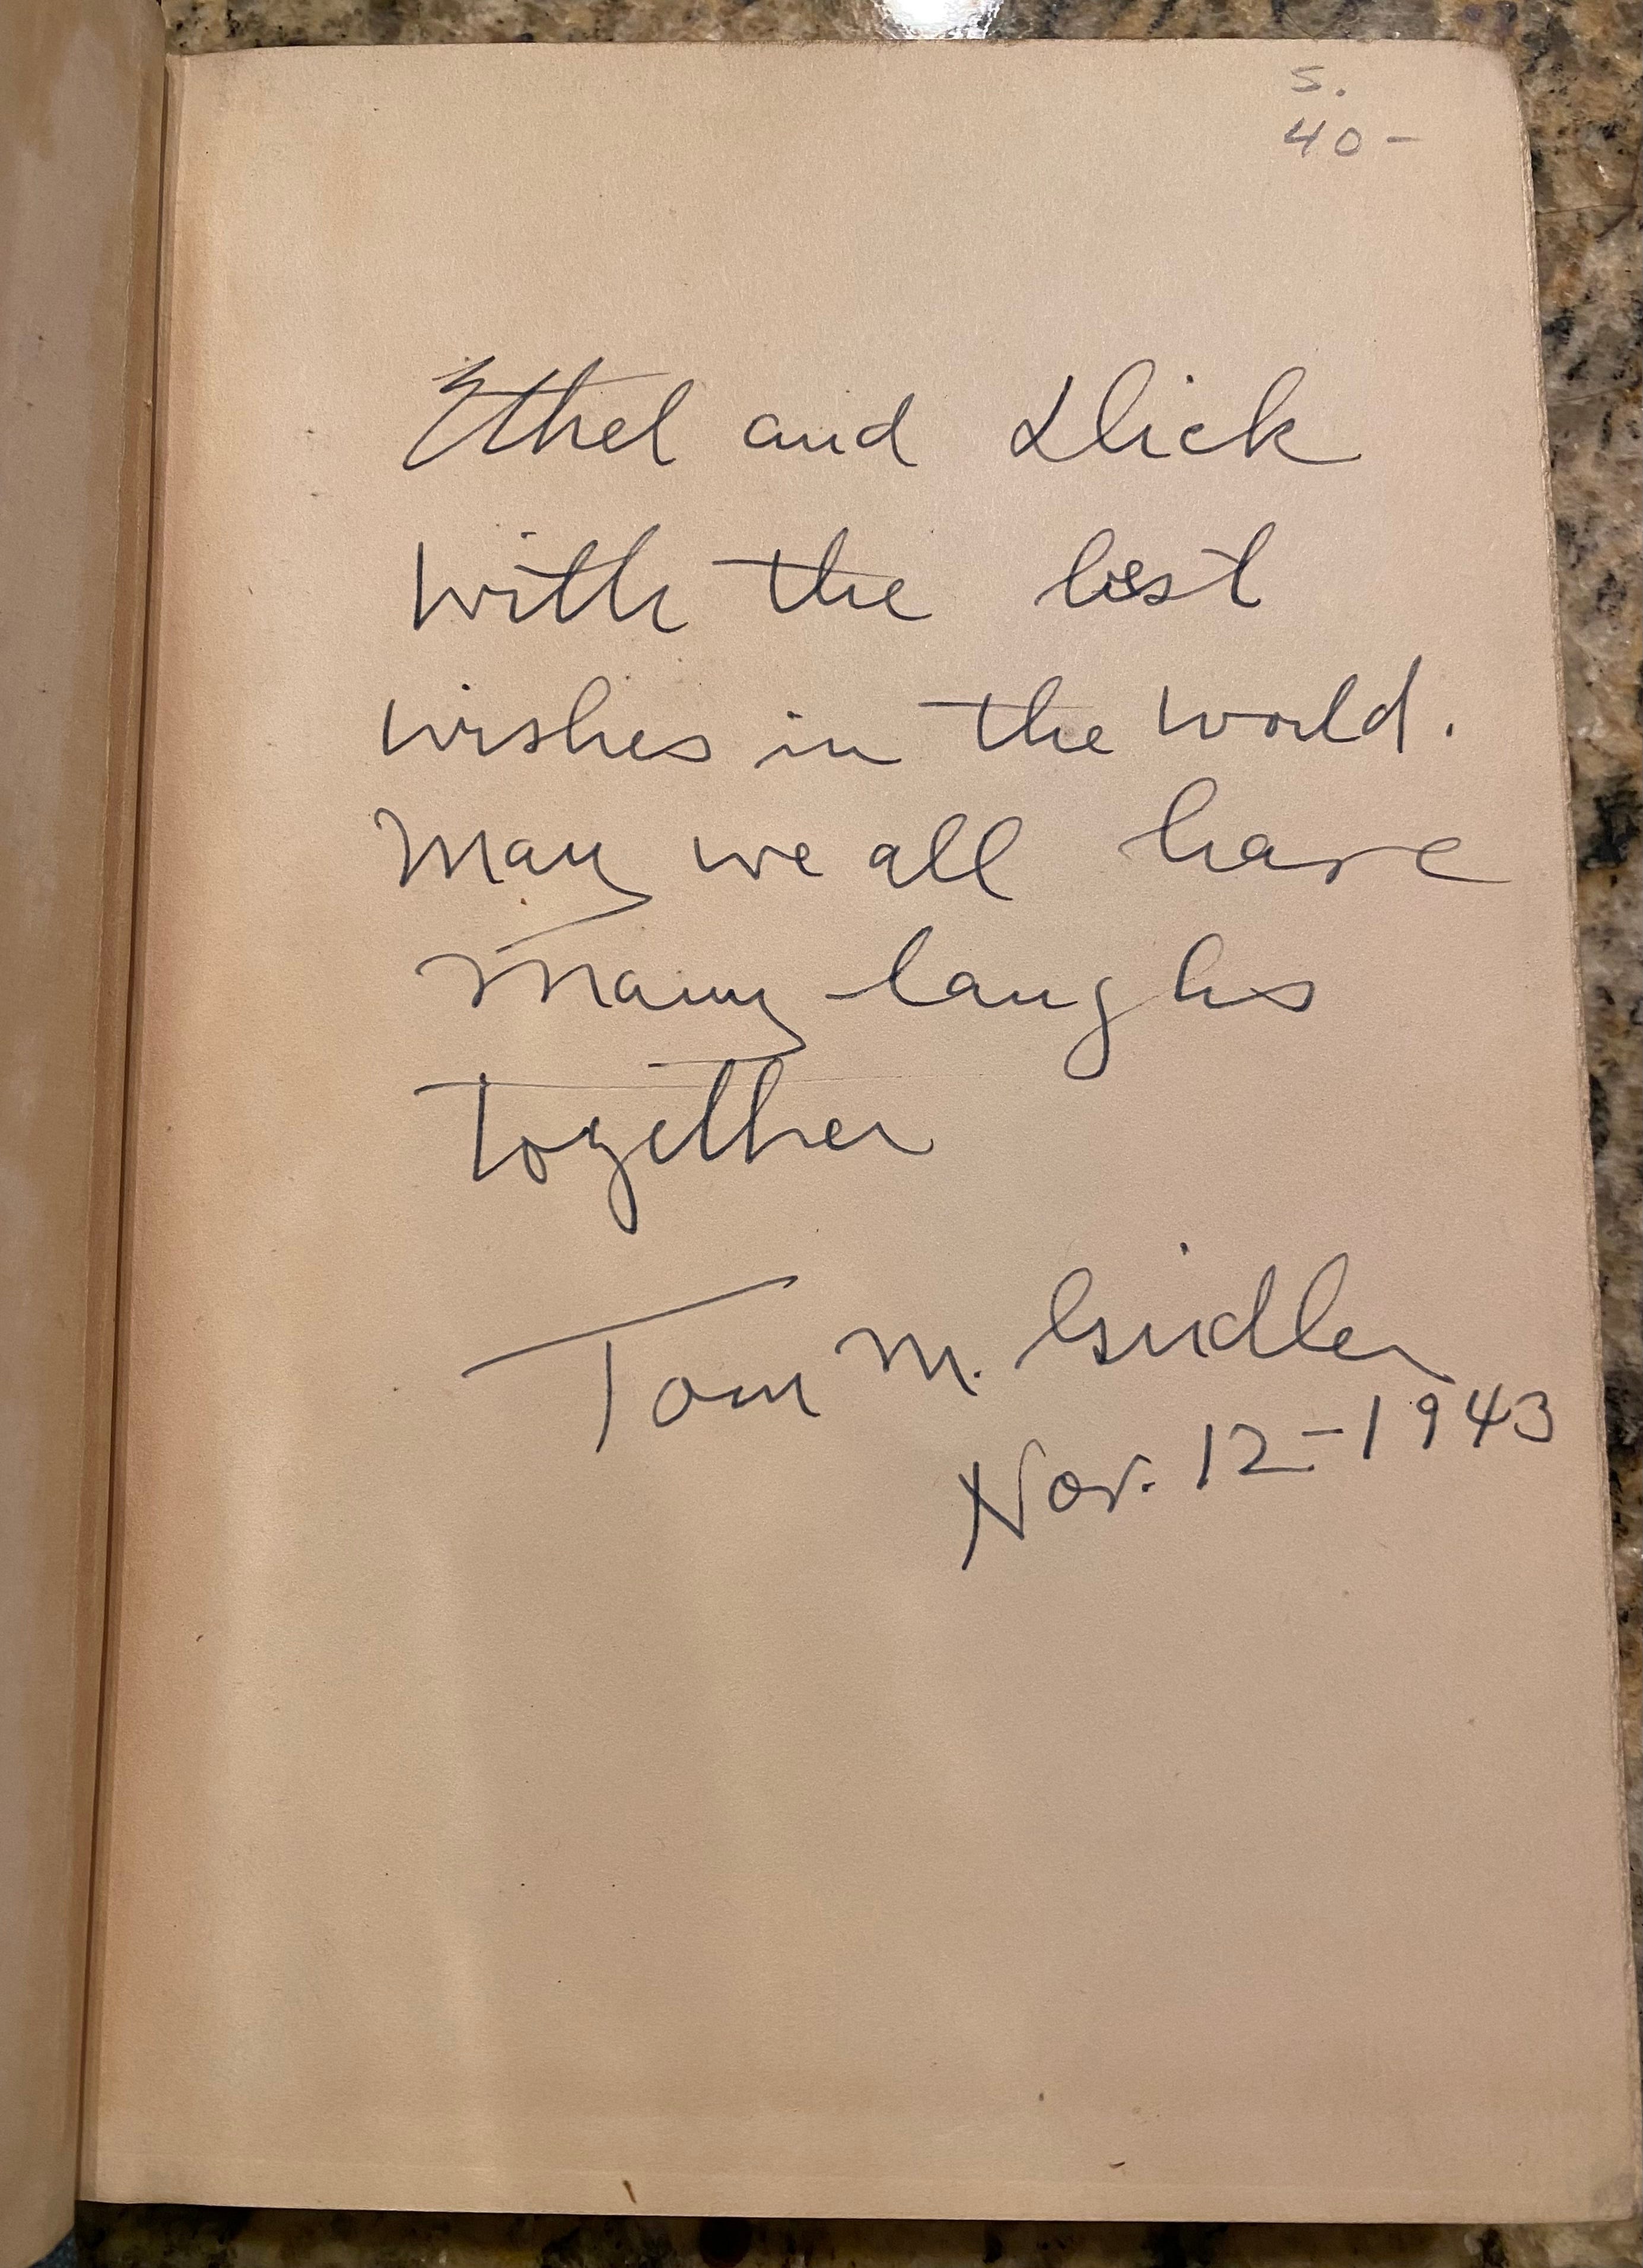 5.
40-
Ethel and Dick
with the best
wishes in the world.
May we all have
many laughs
together
Tom M. Girdler
Nov. 12-1943